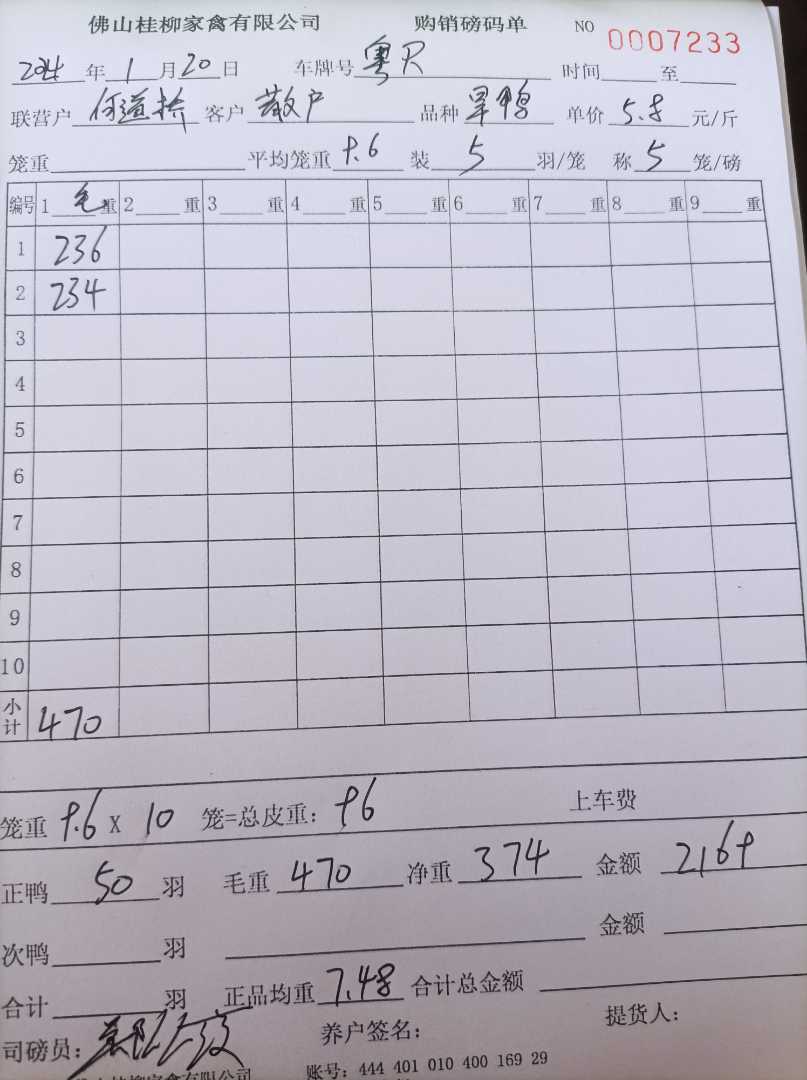 佛山桂柳家禽有限公司 购销磅码单 NO 0007233
2024年1月20日 车牌号 粤R 时间 至
联营户 何道桥 客户 散户 品种 旱鸭 单价 5.8 元/斤
笼重 平均笼重 9.6 装 5 羽/笼 称 5 笼/磅
编号 1 毛 重 2 重 3 重 4 重 5 重 6 重 7 重 8 重 9 重
1 236
2 234
3
4
5
6
7
8
9
10
小计 470
笼重 9.6 X 10 笼=总皮重: 96 上车费
正鸭 50 羽 毛重 470 净重 374 金额 2169
次鸭 羽 金额
合计 羽 正品均重 7.48 合计总金额
司磅员: 养户签名: 提货人:
佛山桂柳家禽有限公司 账号: 444 401 010 400 169 29